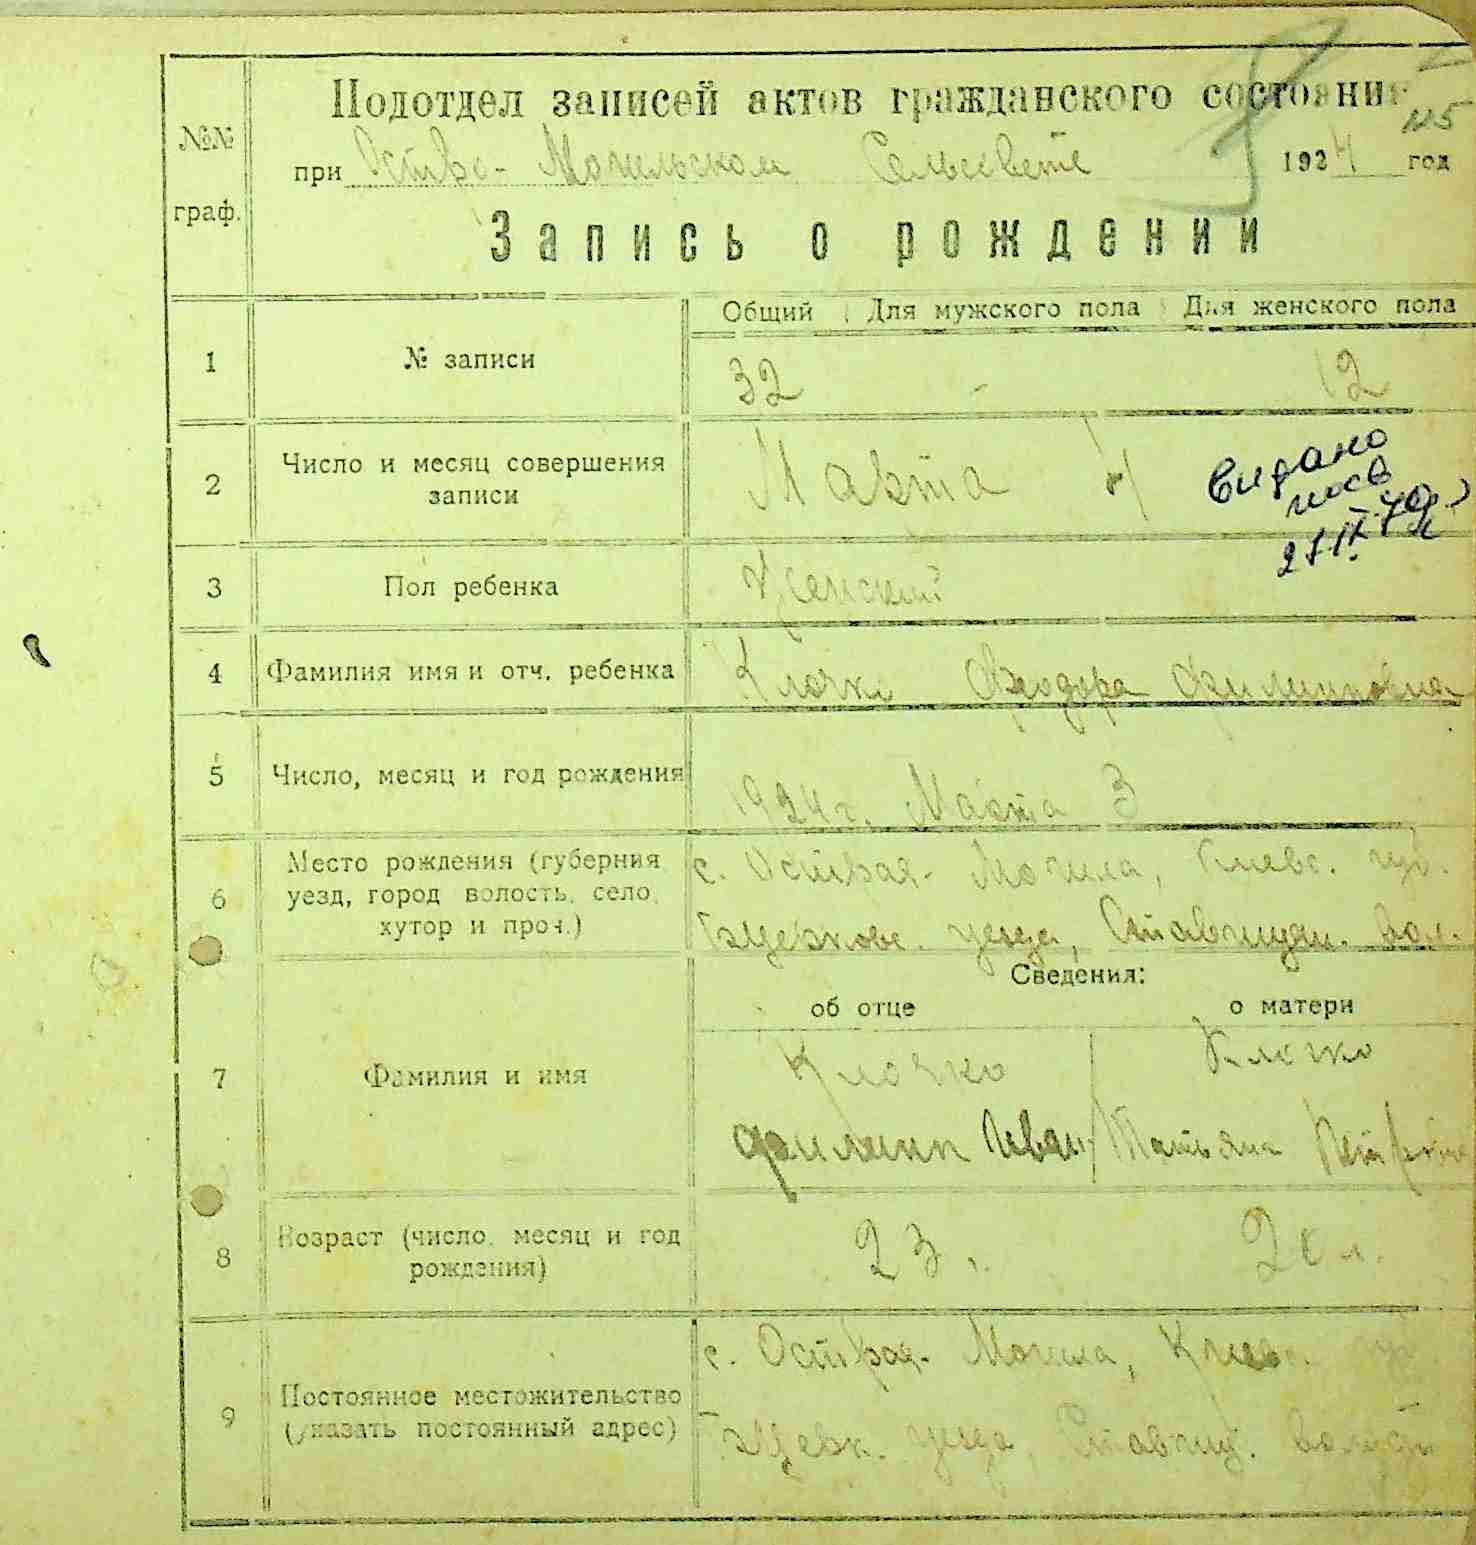 Подотдел записей актов гражданского состояния
115
№№ граф.
при Остро-Могильском Сельсовете 1924 год
Запись о рождении
Общий Для мужского пола Для женского пола
1 № записи 32 - 12
2 Число и месяц совершения записи Марта 4
видано
21 IX 70р.
3 Пол ребенка Женский
4 Фамилия имя и отч. ребенка Клочко Феодора Филипповна
5 Число, месяц и год рождения 1924 г. Марта 3
6 Место рождения (губерния с. Острая-Могила, Киевс. губ.
уезд, город волость, село,
хутор и проч.) Бѣлцерковс. уезда, Ставищан. вол.
Сведения:
об отце о матери
7 Фамилия и имя Клочко Клочко
Филипп Иван Татьяна
8 Возраст (число, месяц и год рождения) 23 20 л.
9 Постоянное местожительство с. Острая-Могила, Киевс.
(указать постоянный адрес) уезда, Ставищ.